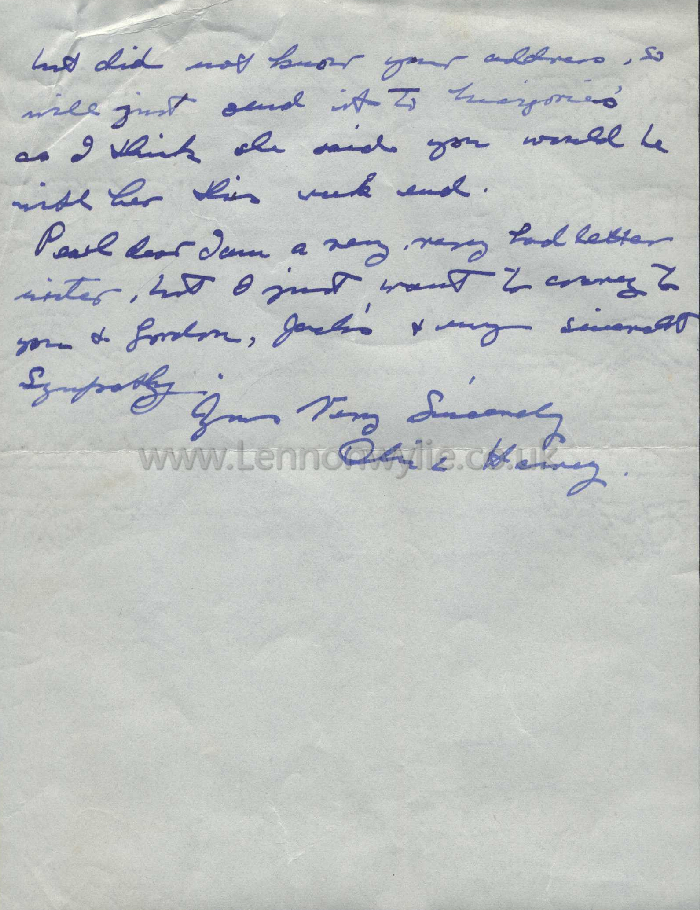 but did not know your address, so
will just send it to Marjorie's
as I think she said you would be
with her this week end.
Pearl dear I am a very, very bad letter
writer, but I just want to convey to
you & Gordon, Jack's & my sincerest
Sympathy.
Yours Very Sincerely
www.Lennonwylie.co.uk
Harvey.